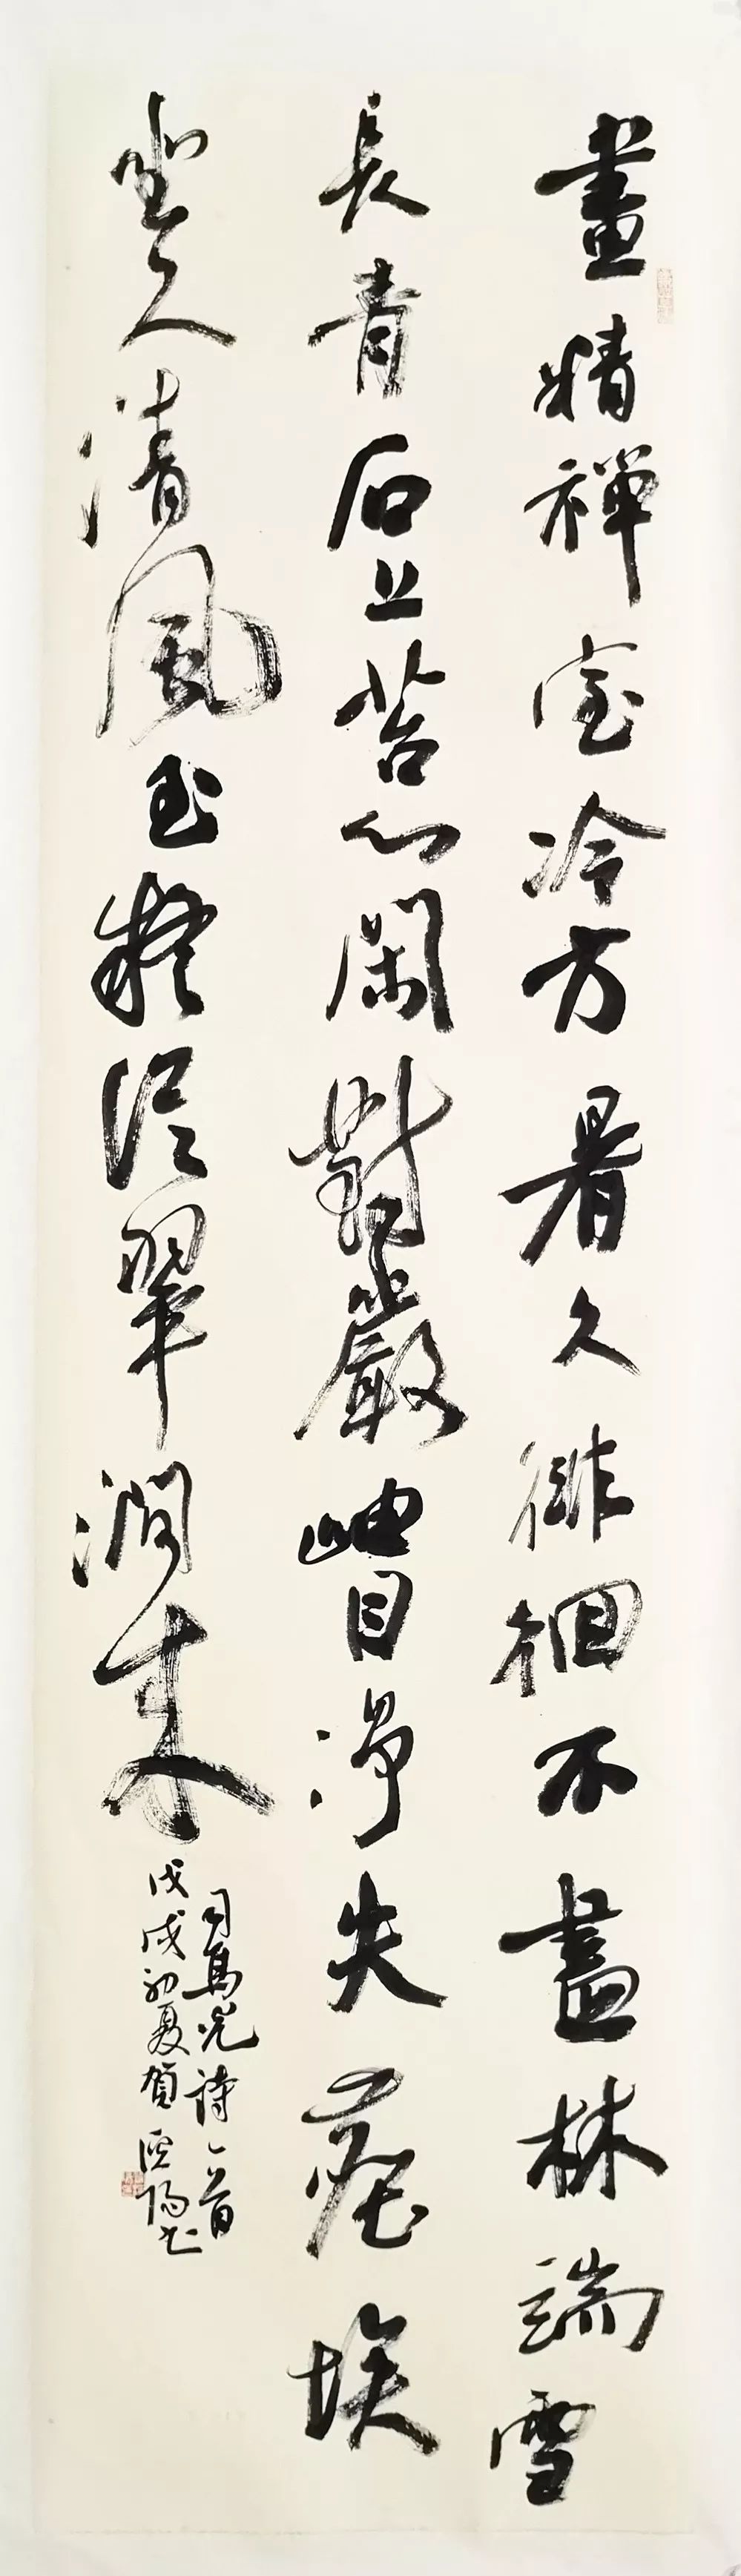 晝精禪室冷方暑久徘徊不盡林端雪
長青石上苔心閑對巖岫目淨失塵埃
坐久清風至疑從翠澗來
司馬光詩一首
戊戌初夏賀陽書